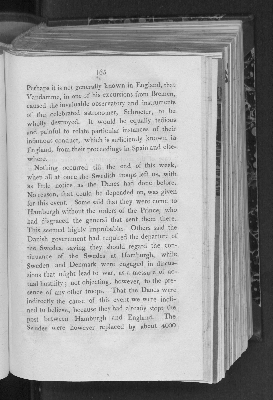 165
Perhaps it is not generally known in England, that
Vandamme, in one of his excursions from Bremen,
caused the invaluable observatory and instruments
of the celebrated astronomer, Schroeter, to be
wholly destroyed. It would be equally tedious
and painful to relate particular instances of their
infamous conduct, which is sufficiently known in
England, from their proceedings in Spain and else-
where.
Nothing occurred till the end of this week,
when all at once the Swedish troops left us, with
as little notice as the Danes had done before.
No reason, that could be depended on, was given
for this event. Some said they were come to
Hamburgh without the orders of the Prince, who
had disgraced the general that sent them there.
This seemed highly improbable. Others said the
Danish government had required the departure of
the Swedes, saying they should regard the con-
tinuance of the Swedes at Hamburgh, while
Sweden and Denmark were engaged in discus-
sions that might lead to war, as a measure of ac-
tual hostility; not objecting, however, to the pre-
sence of any other troops. That the Danes were
indirectly the cause of this event we were incli-
ned to believe, because they had already stopt the
post between Hamburgh and England. The
Swedes were however replaced by about 4000